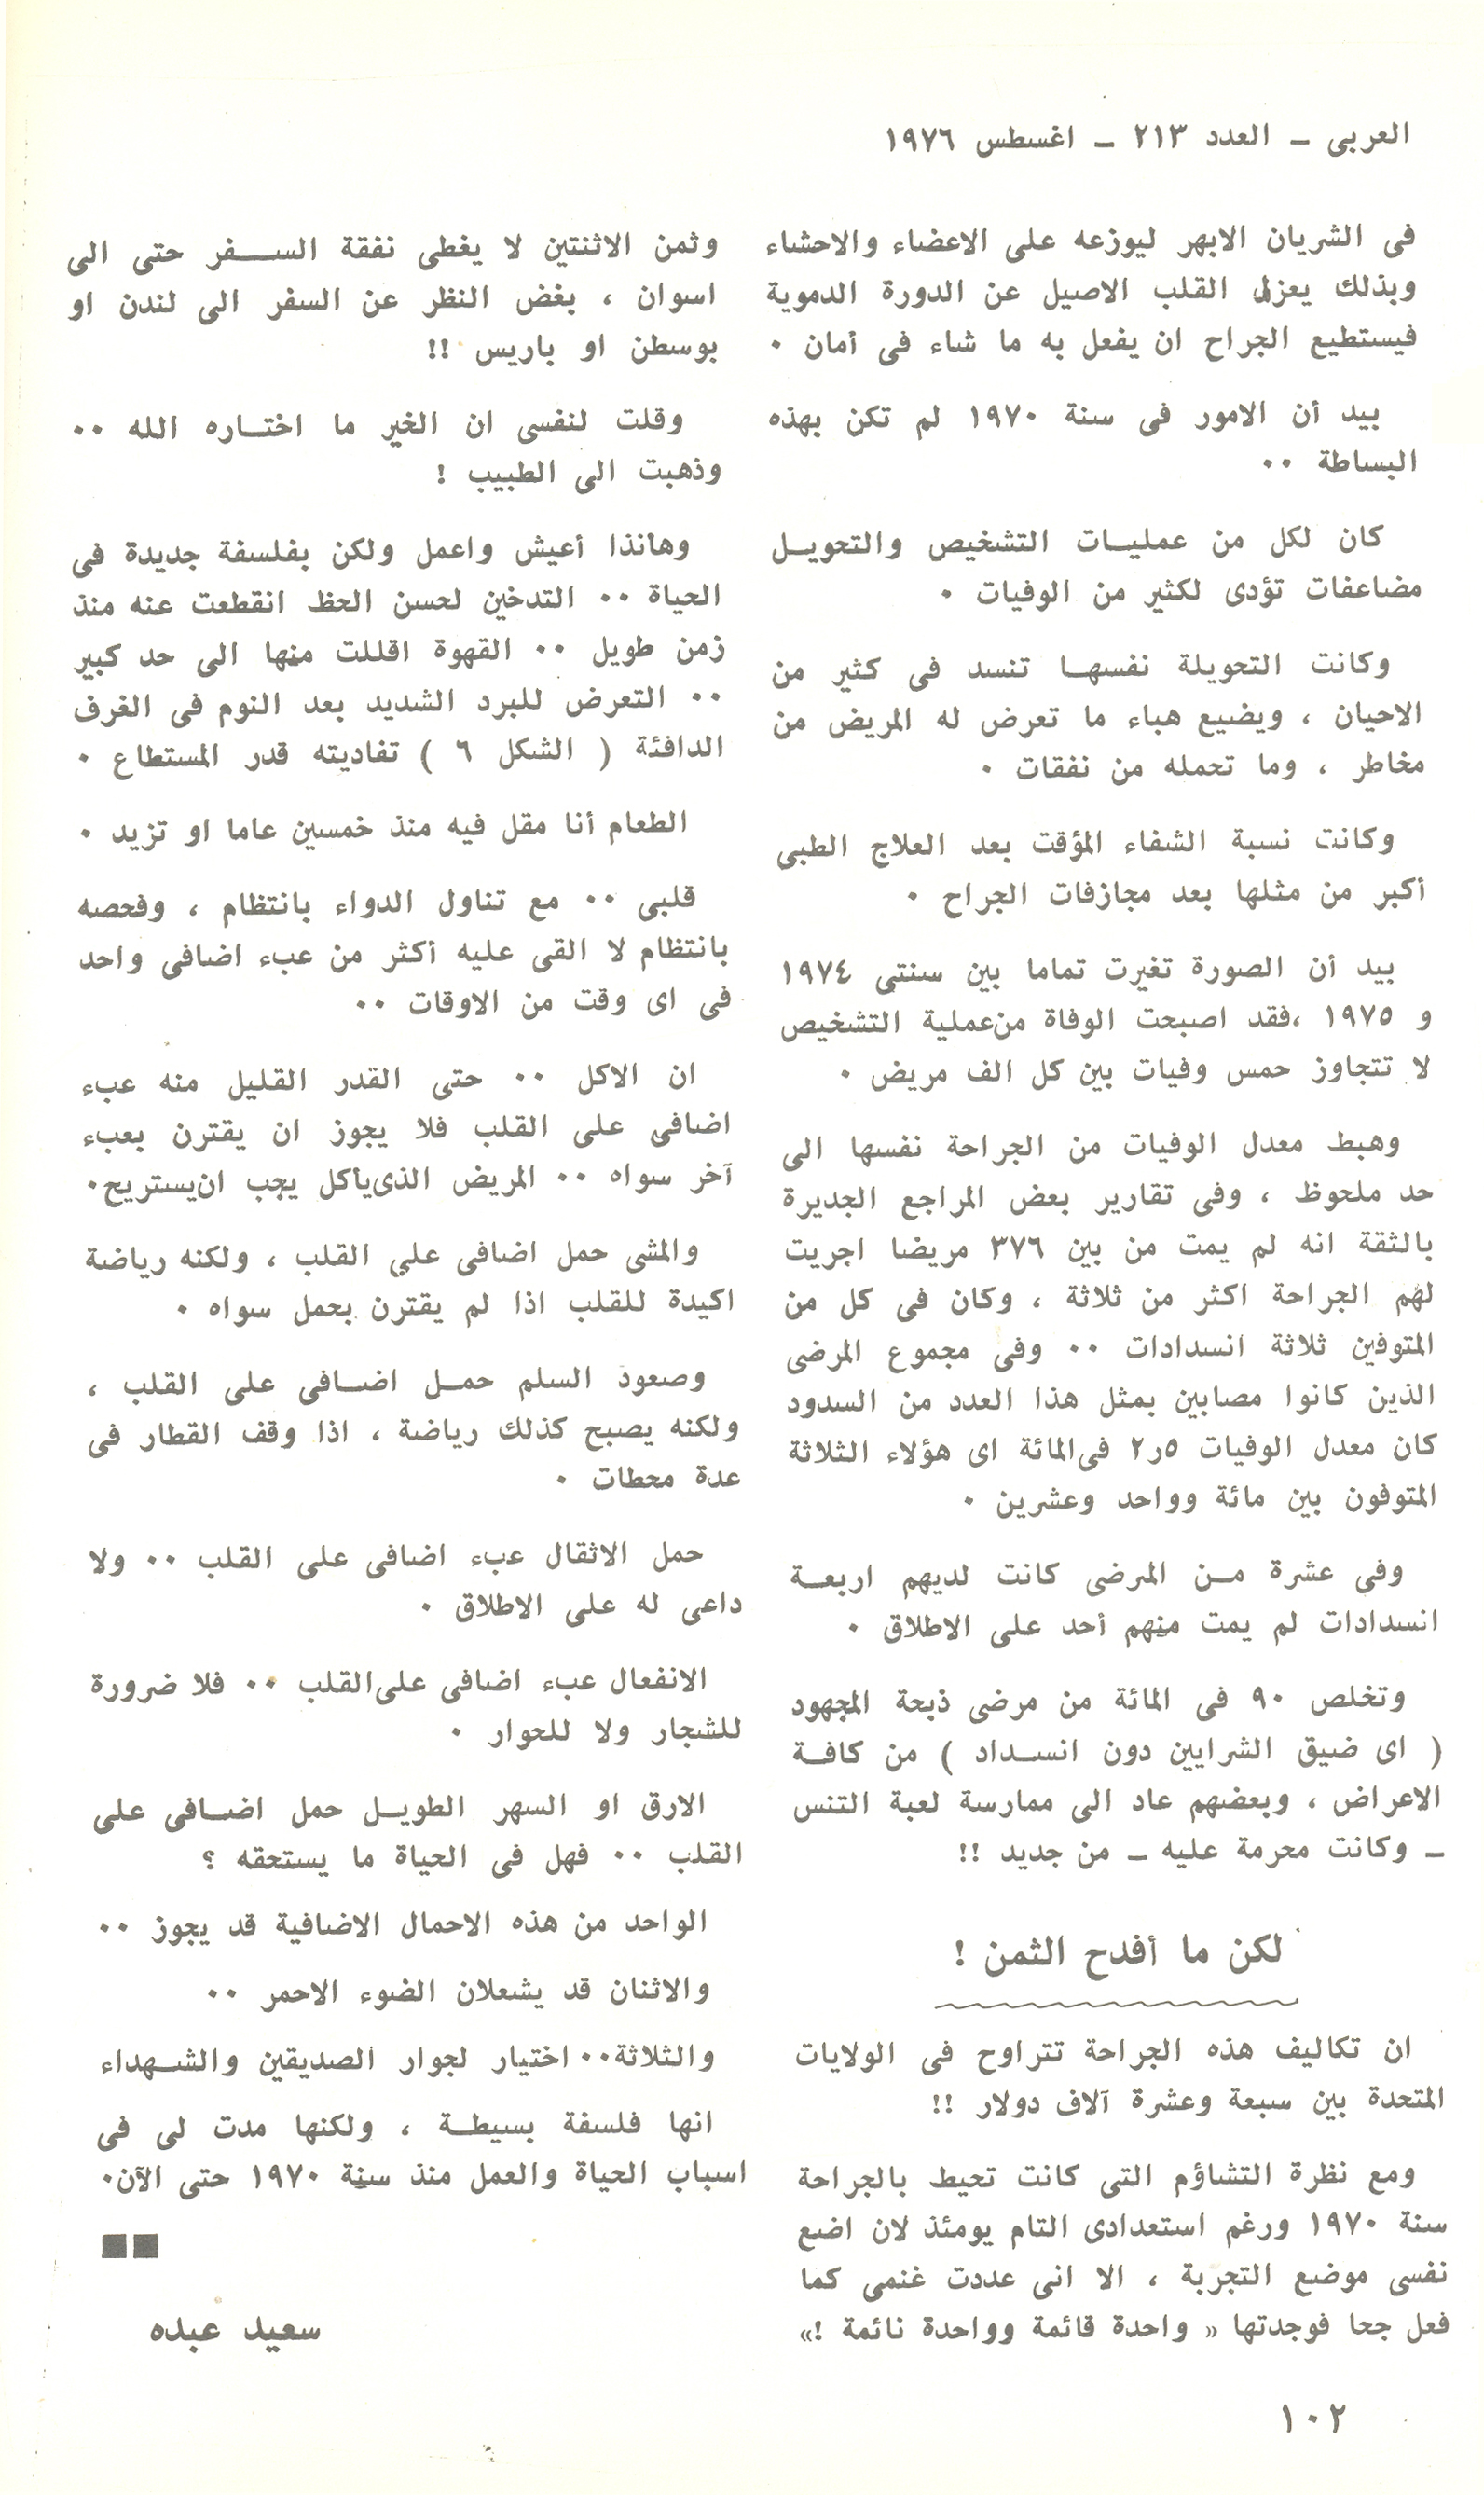 العربى ـ العدد ٢١٣ ـ اغسطس ١٩٧٦
فى الشريان الابهر ليوزعه على الاعضاء والاحشاء
وبذلك يعزل القلب الاصيل عن الدورة الدموية
فيستطيع الجراح ان يفعل به ما شاء فى أمان ٠
بيد أن الامور فى سنة ١٩٧٠ لم تكن بهذه
البساطة ٠٠
كان لكل من عمليات التشخيص والتحويل
مضاعفات تؤدى لكثير من الوفيات ٠
وكانت التحويلة نفسها تنسد فى كثير من
الاحيان ، ويضيع هباء ما تعرض له المريض من
مخاطر ، وما تحمله من نفقات ٠
وكانت نسبة الشفاء المؤقت بعد العلاج الطبى
أكبر من مثلها بعد مجازفات الجراح ٠
بيد أن الصورة تغيرت تماما بين سنتى ١٩٧٤
و ١٩٧٥ ،فقد اصبحت الوفاة من عملية التشخيص
لا تتجاوز خمس وفيات بين كل الف مريض ٠
وهبط معدل الوفيات من الجراحة نفسها الى
حد ملحوظ ، وفى تقارير بعض المراجع الجديرة
بالثقة انه لم يمت من بين ٣٧٦ مريضا اجريت
لهم الجراحة اكثر من ثلاثة ، وكان فى كل من
المتوفين ثلاثة انسدادات ٠٠ وفى مجموع المرضى
الذين كانوا مصابين بمثل هذا العدد من السدود
كان معدل الوفيات ٥ر٢ فى المائة اى هؤلاء الثلاثة
المتوفون بين مائة وواحد وعشرين ٠
وفى عشرة من المرضى كانت لديهم اربعة
انسدادات لم يمت منهم أحد على الاطلاق ٠
وتخلص ٩٠ فى المائة من مرضى ذبحة المجهود
( اى ضيق الشرايين دون انسداد ) من كافة
الاعراض ، وبعضهم عاد الى ممارسة لعبة التنس
ـ وكانت محرمة عليه ـ من جديد !!
لكن ما أفدح الثمن !
ان تكاليف هذه الجراحة تتراوح فى الولايات
المتحدة بين سبعة وعشرة آلاف دولار !!
ومع نظرة التشاؤم التى كانت تحيط بالجراحة
سنة ١٩٧٠ ورغم استعدادى التام يومئذ لان اضع
نفسى موضع التجربة ، الا انى عددت غنمى كما
فعل جحا فوجدتها « واحدة قائمة وواحدة نائمة !»
وثمن الاثنتين لا يغطى نفقة السفر حتى الى
اسوان ، بغض النظر عن السفر الى لندن او
بوسطن او باريس !!
وقلت لنفسى ان الخير ما اختاره الله ٠٠
وذهبت الى الطبيب !
وهانذا أعيش واعمل ولكن بفلسفة جديدة فى
الحياة ٠٠ التدخين لحسن الحظ انقطعت عنه منذ
زمن طويل ٠٠ القهوة اقللت منها الى حد كبير
٠٠ التعرض للبرد الشديد بعد النوم فى الغرف
الدافئة ( الشكل ٦ ) تفاديته قدر المستطاع ٠
الطعام أنا مقل فيه منذ خمسين عاما او تزيد ٠
قلبى ٠٠ مع تناول الدواء بانتظام ، وفحصه
بانتظام لا القى عليه أكثر من عبء اضافى واحد
فى اى وقت من الاوقات ٠٠
ان الاكل ٠٠ حتى القدر القليل منه عبء
اضافى على القلب فلا يجوز ان يقترن بعبء
آخر سواه ٠٠ المريض الذى يأكل يجب ان يستريح٠
والمشى حمل اضافى على القلب ، ولكنه رياضة
اكيدة للقلب اذا لم يقترن بحمل سواه ٠
وصعود السلم حمل اضافى على القلب ،
ولكنه يصبح كذلك رياضة ، اذا وقف القطار فى
عدة محطات ٠
حمل الاثقال عبء اضافى على القلب ٠٠ ولا
داعى له على الاطلاق ٠
الانفعال عبء اضافى على القلب ٠٠ فلا ضرورة
للشجار ولا للحوار ٠
الارق او السهر الطويل حمل اضافى على
القلب ٠٠ فهل فى الحياة ما يستحقه ؟
الواحد من هذه الاحمال الاضافية قد يجوز ٠٠
والاثنان قد يشعلان الضوء الاحمر ٠٠
والثلاثة٠٠ اختيار لجوار الصديقين والشهداء
انها فلسفة بسيطة ، ولكنها مدت لى فى
اسباب الحياة والعمل منذ سنة ١٩٧٠ حتى الآن٠
سعيد عبده
١٠٢